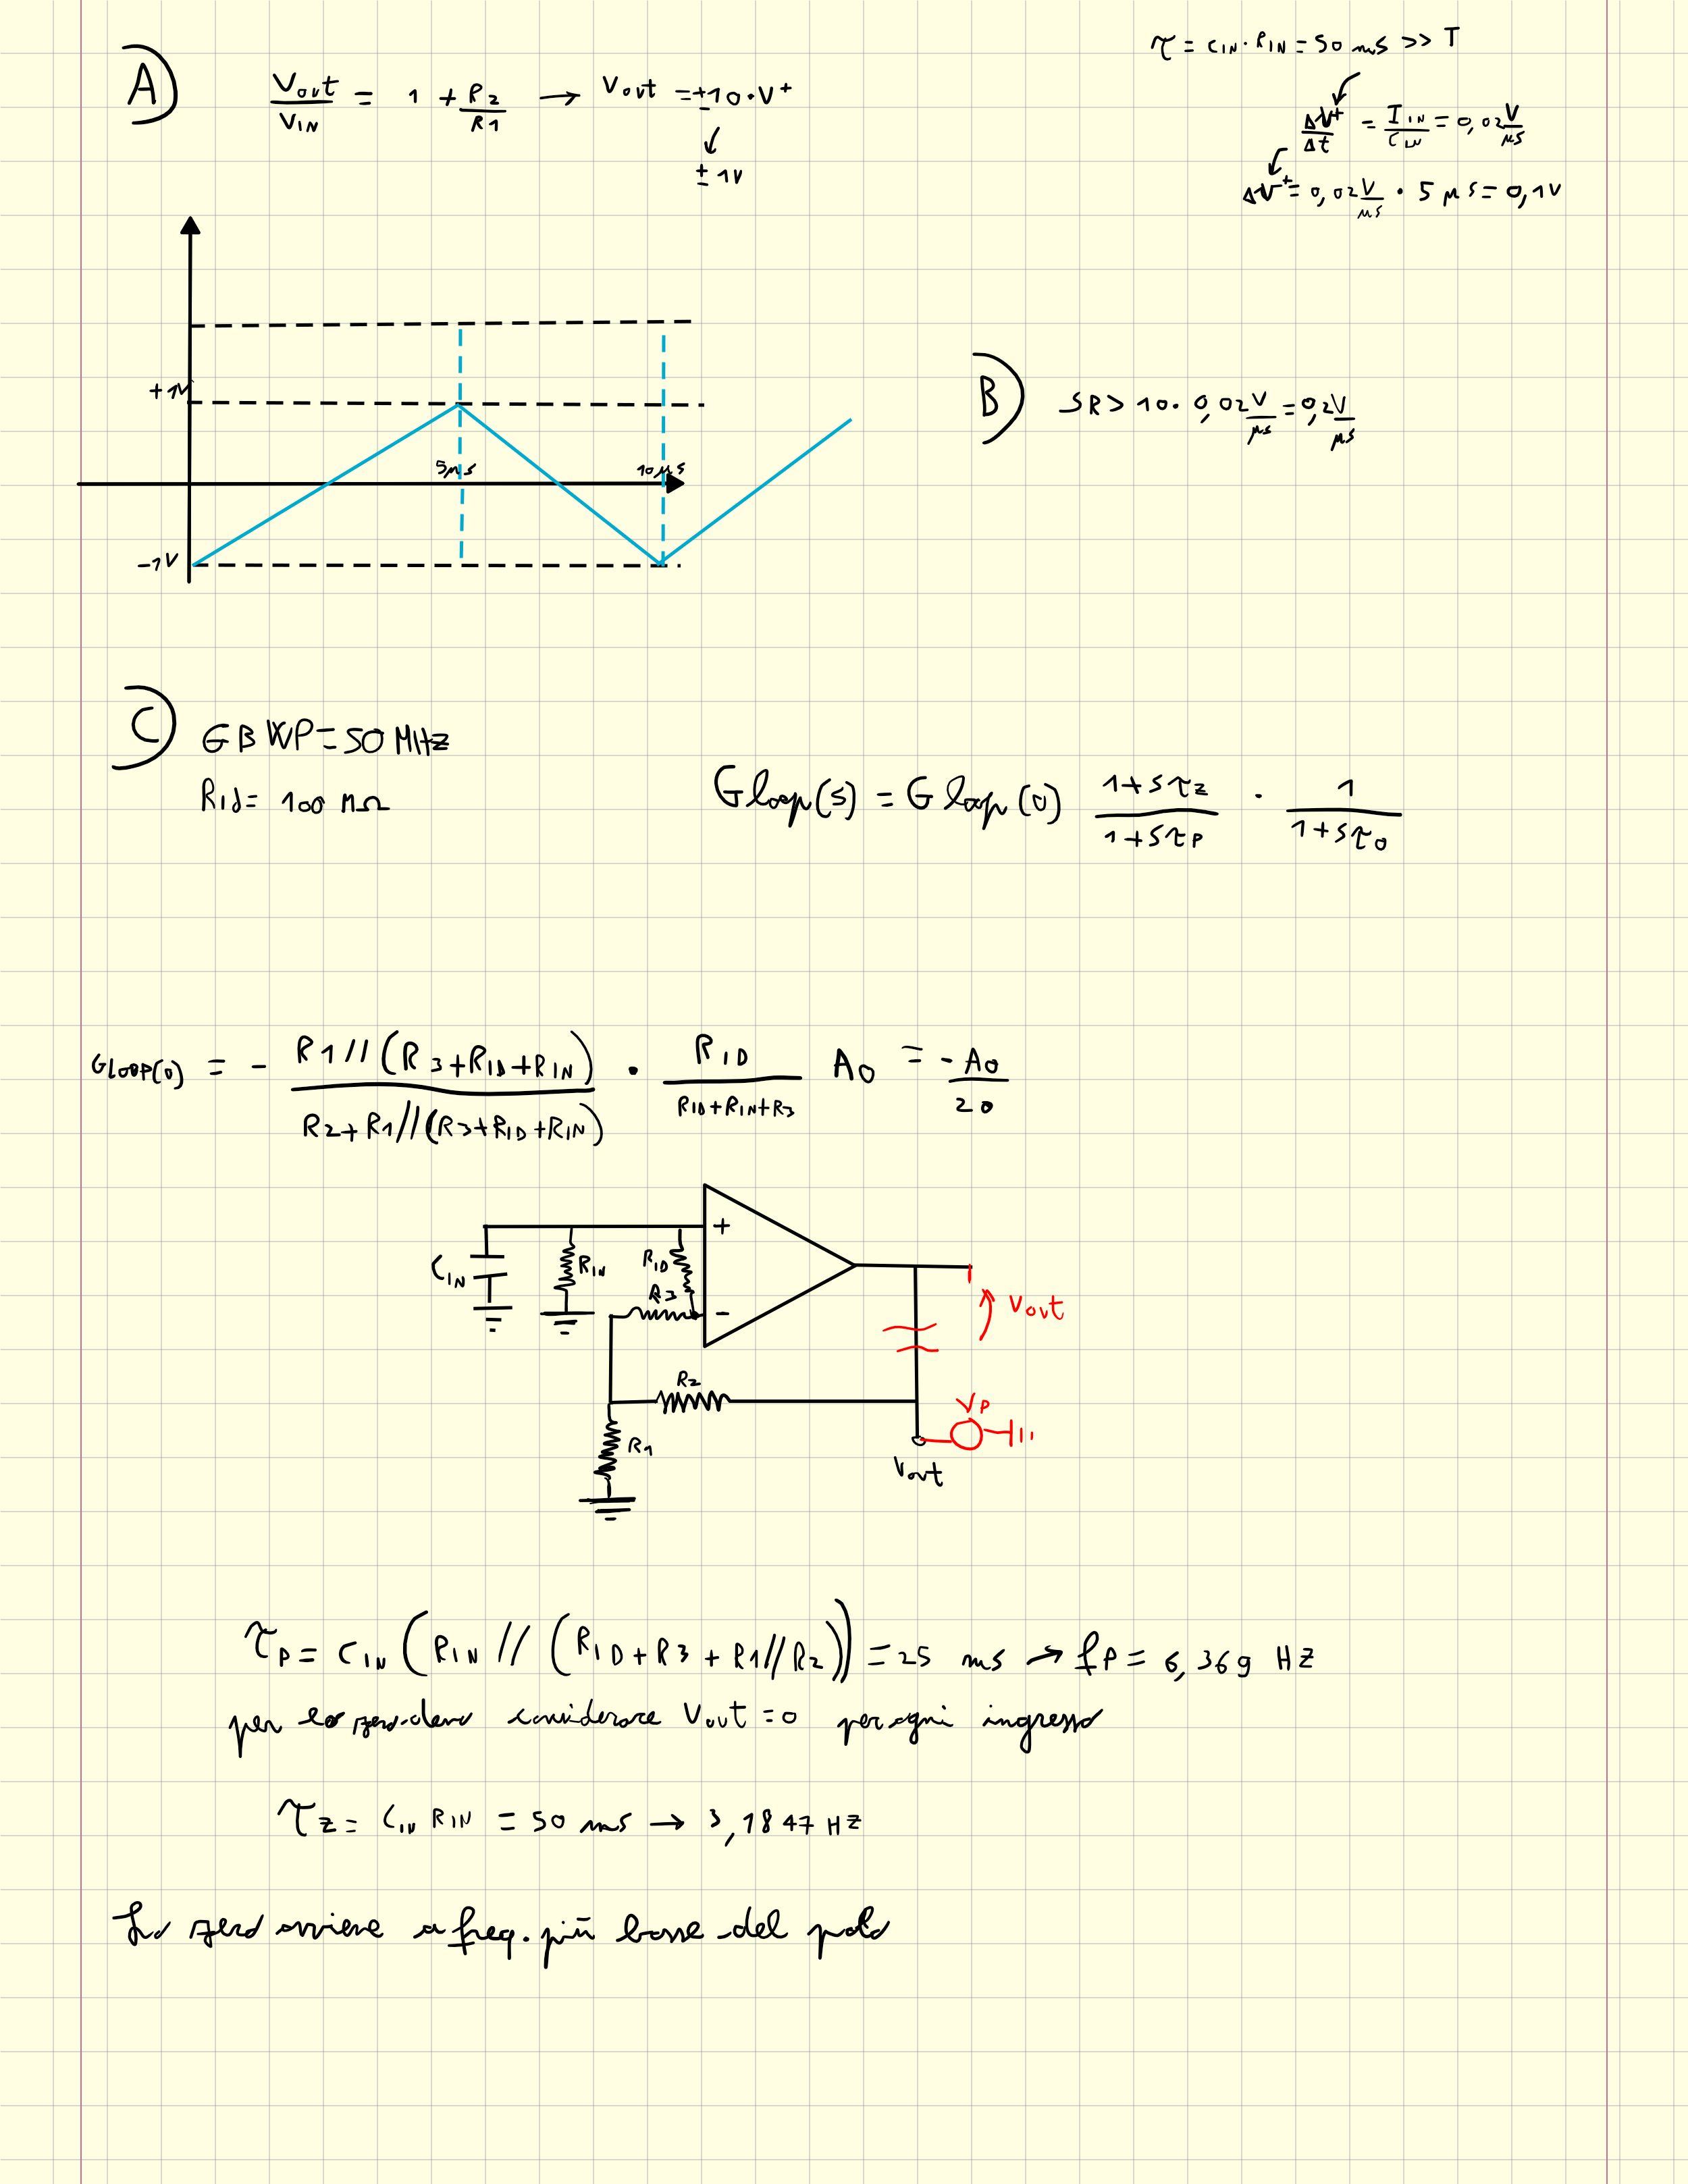 A)
Vout/VIN = 1 + R2/R1 → Vout = ±10·V⁺
± 1V
τ = CIN·RIN = 50 ms >> T
ΔV⁺/Δt = IIN/CIN = 0,02 V/μs
ΔV⁺ = 0,02 V/μs · 5 μs = 0,1V
+1V
5μs
10μs
-1V
B) SR > 10·0,02 V/μs = 0,2 V/μs
C) GBWP = 50 MHz
RId = 100 MΩ
Gloop(s) = Gloop(0) (1+sτz)/(1+sτp) · 1/(1+sτ0)
GLOOP(0) = - (R1//(R3+RID+RIN))/(R2+R1//(R3+RID+RIN)) · RID/(RID+RIN+R3) A0 = -A0/20
CIN
RIN
RID
R3
+
-
Vout
R2
VP
R1
Vout
τp = CIN (RIN // (RID + R3 + R1//R2)) = 25 ms → fp = 6,369 Hz
per lo zero devo considerare Vout = 0 per ogni ingresso
τz = CIN RIN = 50 ms → 3,1847 Hz
Lo zero avviene a freq. più basse del polo